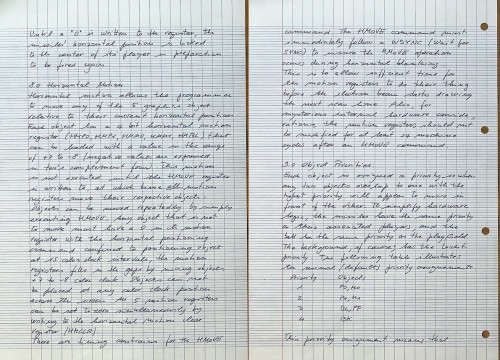 Until a "0" is written to the register, the
missiles' horizontal position is locked
to the center of its player in preparation
to be fired again.
8.0 Horizontal Motion
Horizontal motion allows the programmer
to move any of the 5 graphics object
relative to their current horizontal position.
Each object has a 4 bit horizontal motion
register (HMP0, HMP1, HMM0, HMM1, HMBL) that
can be loaded with a value in the range
of +7 to -8 (negative values are expressed
in two's complement form). This motion
is not executed until the HMOVE register
is written to, at which time all motion
registers move their respective objects.
Objects can be moved repeatedly by simply
executing HMOVE. Any object that is not
to move must have a 0 in its motion
register. With the horizontal positioning
command confined to positioning object
at 15 color clock intervals, the motion
registers fills in the gaps by moving objects
+7 to -8 color clocks. Objects can not
be placed at any color clock position
across the screen. All 5 motion registers
can be set to zero simultaneously by
writing to the horizontal motion clear
register (HMCLR).
There are timing constraints for the HMOVE
command. The HMOVE command must
immediately follow a WSYNC (Wait for
SYNC) to insure the HMOVE operation
occurs during horizontal blanking.
This is to allow sufficient time for
the motion registers to do their thing
before the electron beam starts drawing
the next scan line. Also, for
mysterious internal hardware considerations,
the motion registers should not
be modified for at least 24 machine
cycles after an HMOVE command.
9.0 Object Priorities
Each object is assigned a priority so when
any two objects overlap to one with the
highest priority will appear to move in
front of the other. To simplify hardware
logic, the missiles have the same priority
as their associated player, and the
ball has the same priority as the playfield.
The background of course, has the lowest
priority. The following table illustrates
the normal (default) priority assignments.
Priority Objects
1 P0, M0
2 P1, M1
3 BL, PF
4 BK
This priority assignment means that